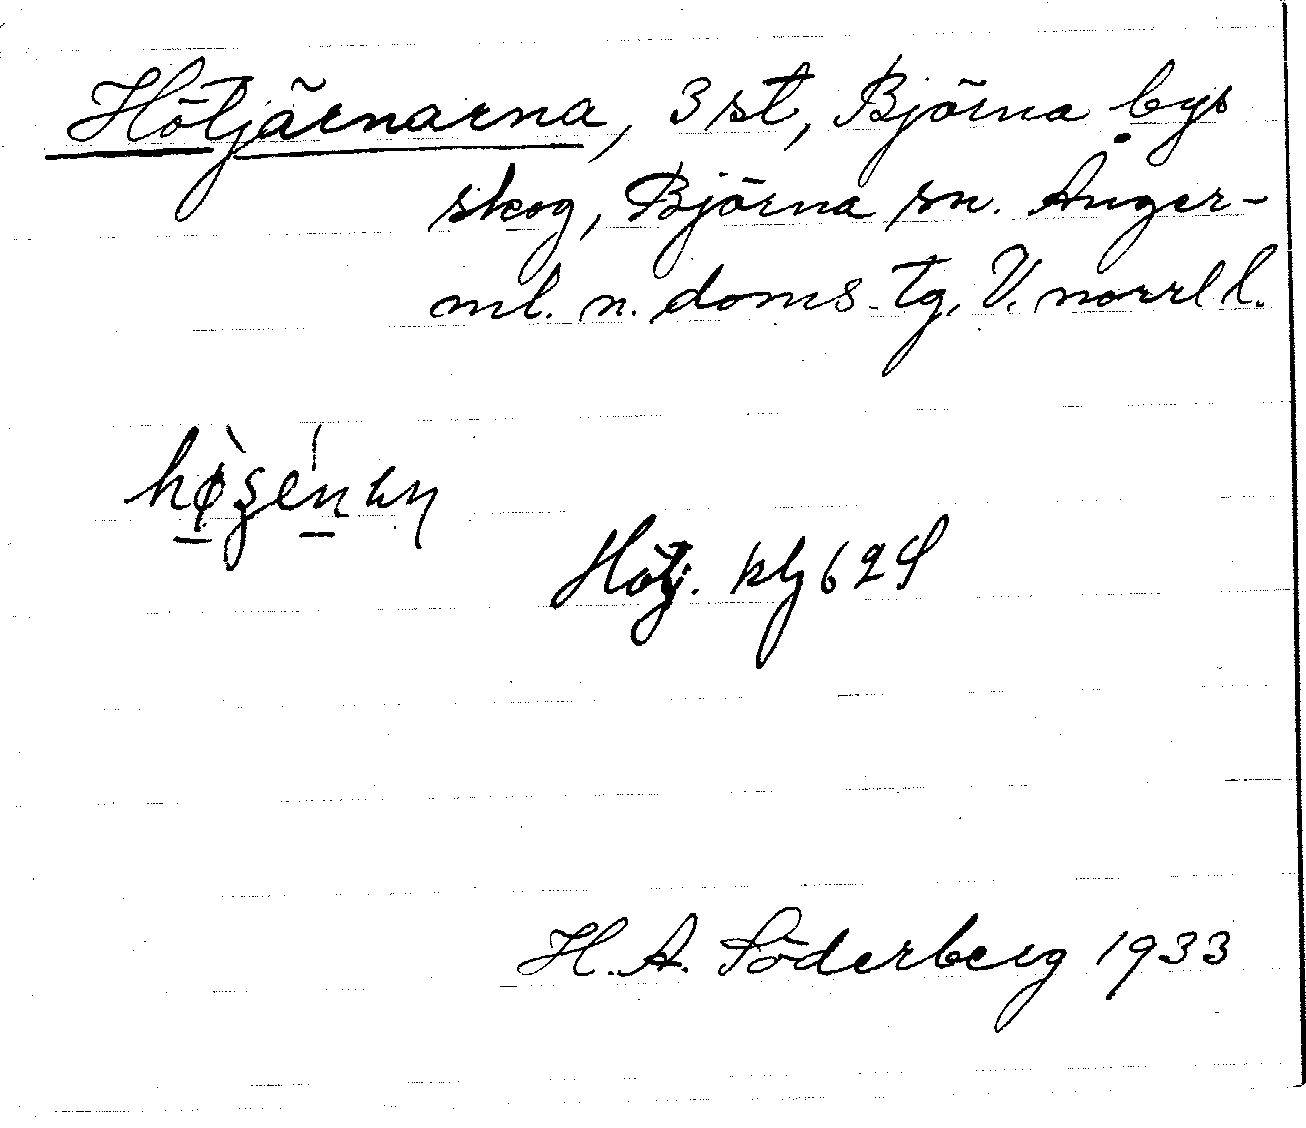 Hötjärnarna, 3 st, Björna bys
skog, Björna sn. Ånger-
ml. n. doms. tg, V. norrl l.
Hötj. klj 62 S
H. A. Söderberg 1933